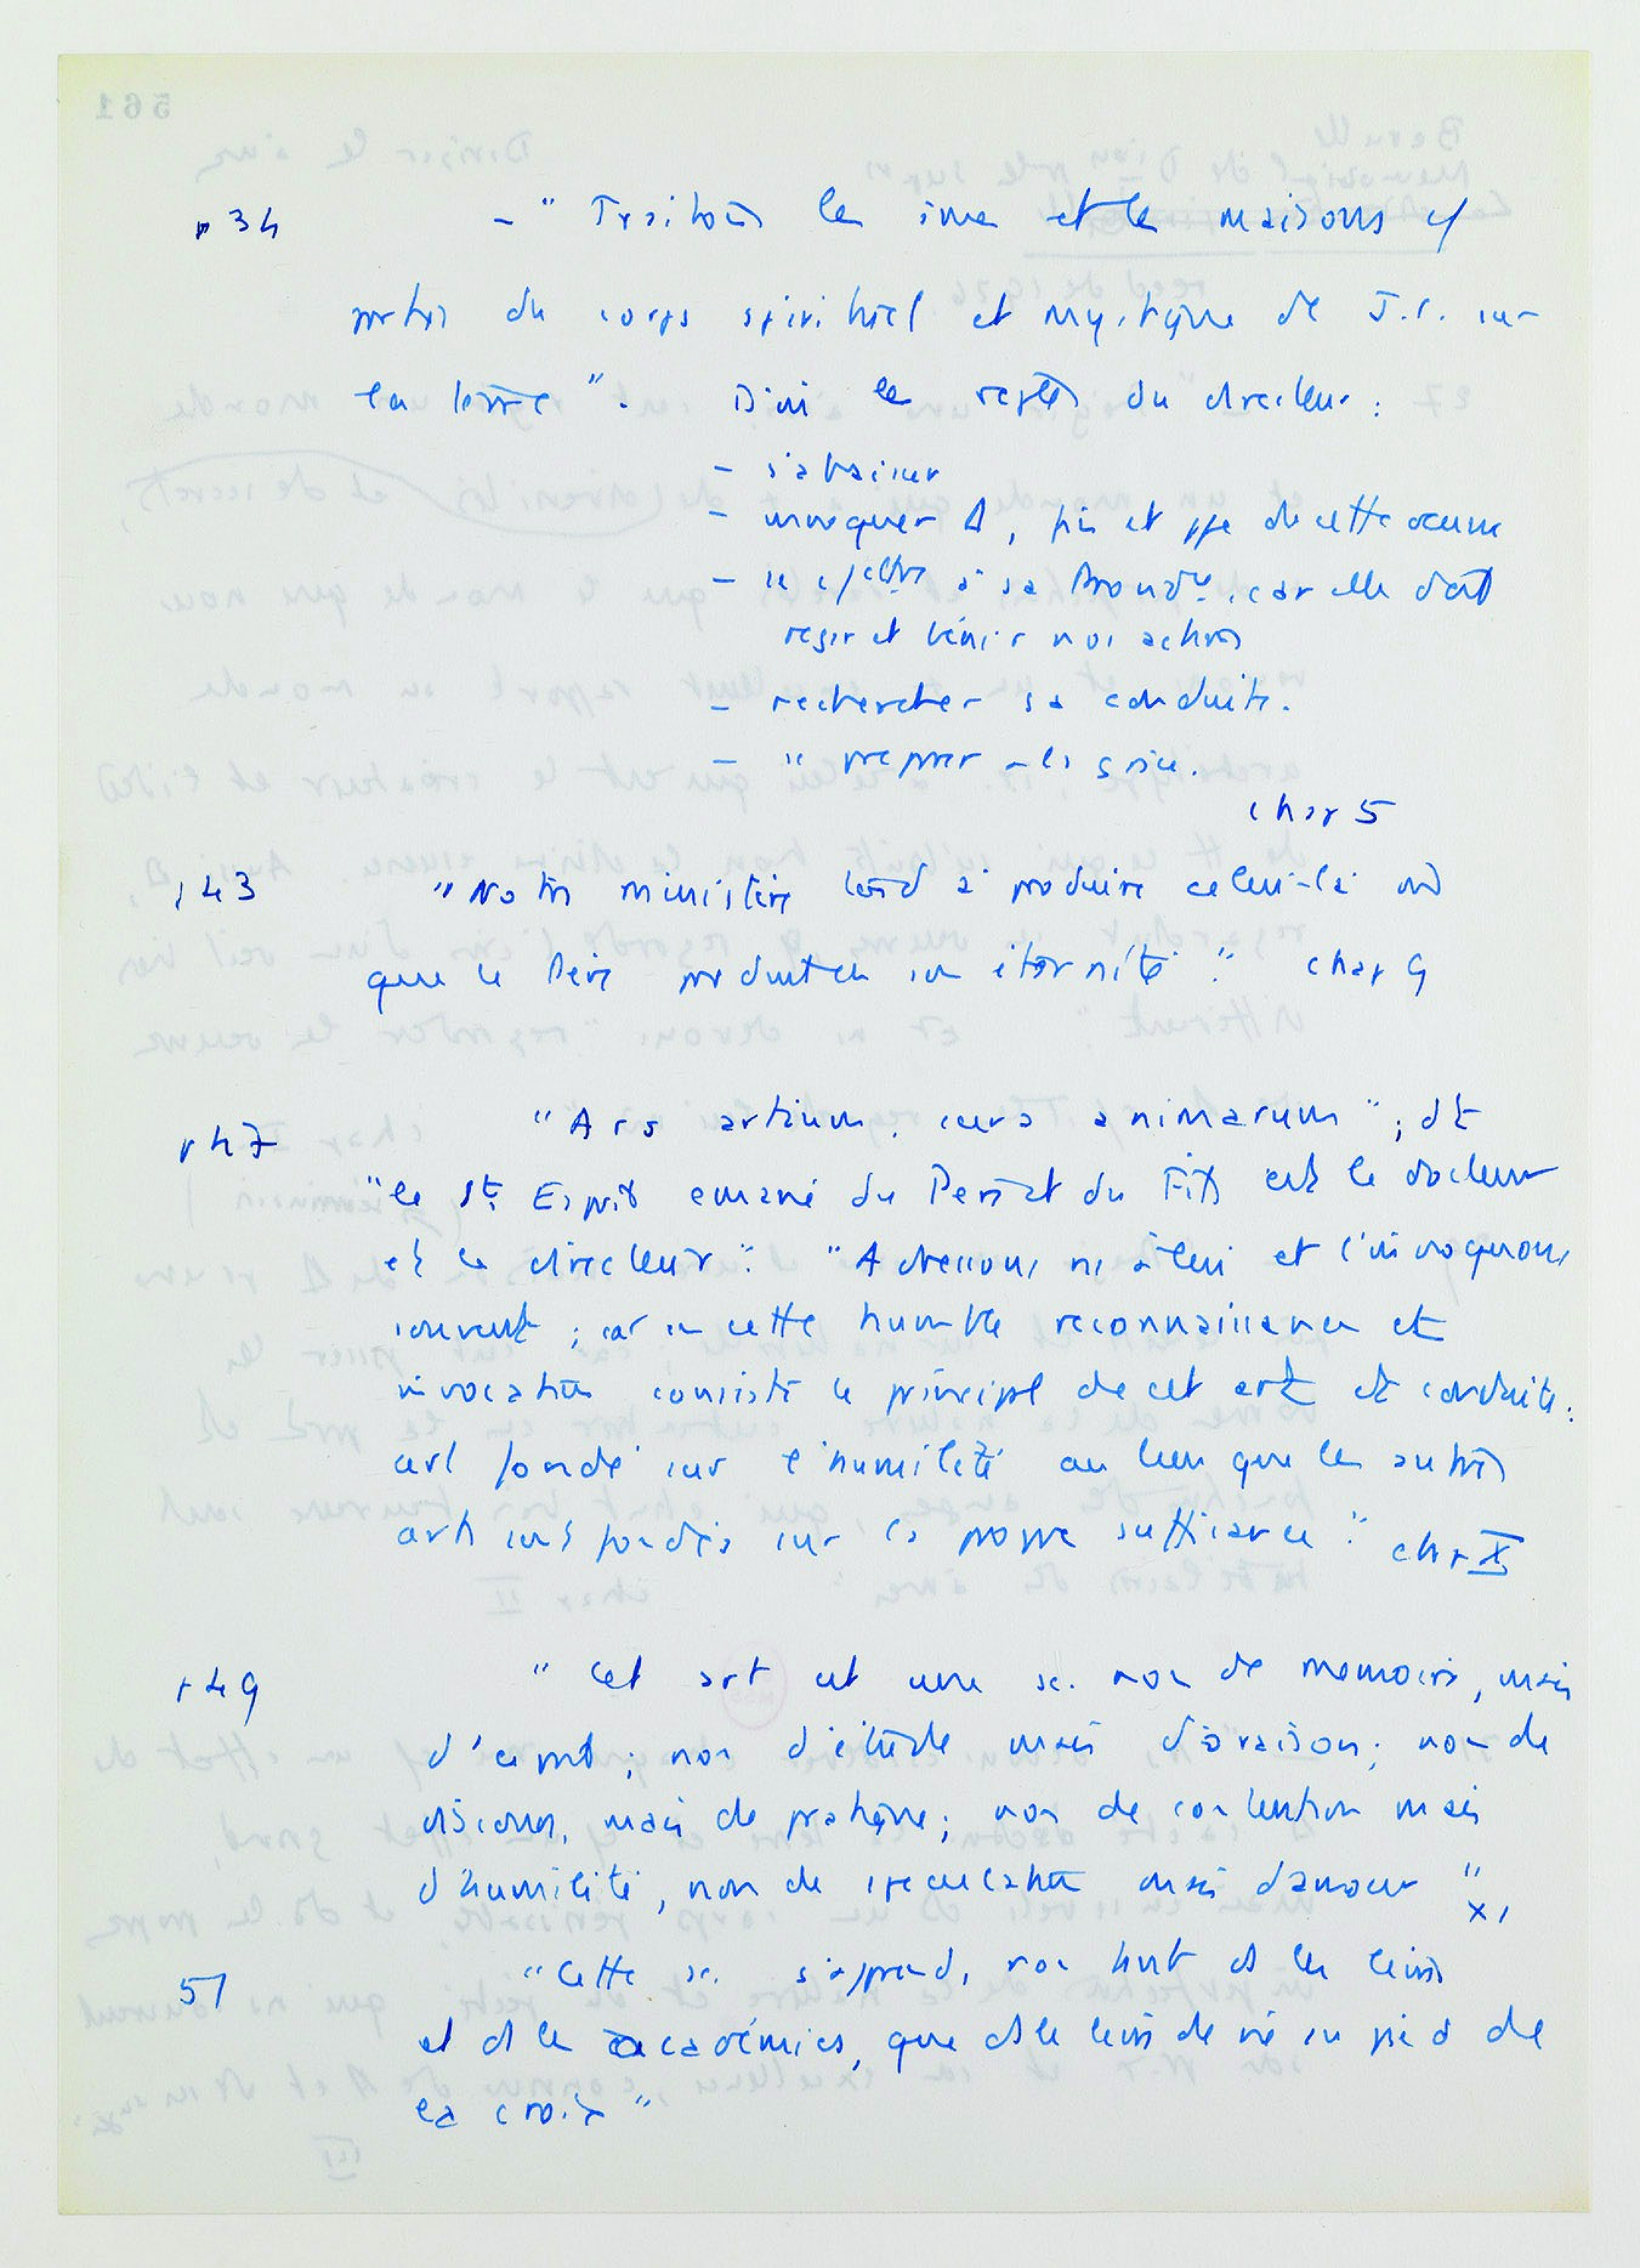 p 34 - "Traitons les âmes et les maisons cf
parties du corps spirituel et mystique de J.C. sur
la terre". D'où les règles du directeur :
- s'abaisser
- invoquer Δ, fin et ppe de cette œuvre
- se à sa car elle doit
régir et bénir nos actions
- rechercher sa conduite.
- " grâce.
chap 5
p 43 "Notre ministère tend à produire celui-là
que le Père produit en son éternité". chap 9
p 47 "Ars artium, cura animarum" ; dt
"le St. Esprit émané du Père et du Fils est le docteur
et le directeur". "Adressons ns à lui et l'invoquons
souvent ; car en cette humble reconnaissance et
invocation consiste le principal de cet art et conduite :
art fondé sur l'humilité au lieu que les autres
arts sont fondés sur la propre suffisance". chap X
p 49 "Cet art est une sc. non de mémoire, mais
d'esprit ; non d'étude mais d'oraison ; non de
discours, mais de pratique ; non de contention mais
d'humilité, non de spéculation mais d'amour" XI
51 "Cette sc. s'apprend, non tant ds les livres
et ds les académies, que ds le livre de vie au pied de
la croix"